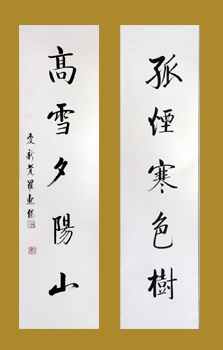 孤煙寒色樹
高雪夕陽山
愛新覺羅